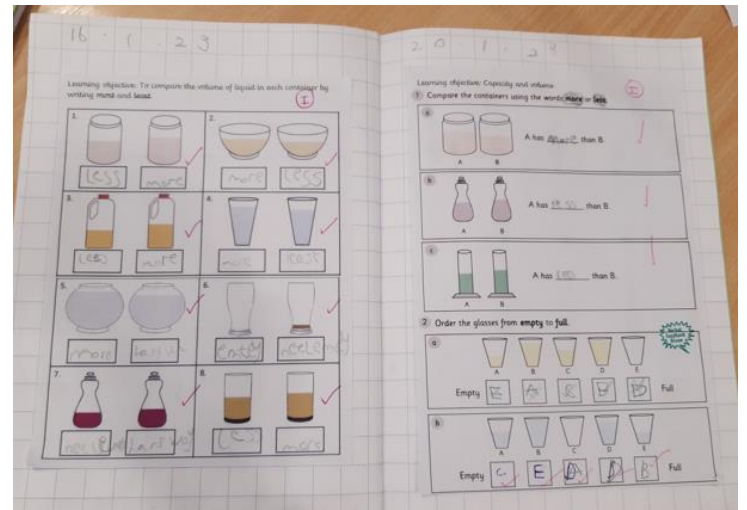 16 . 1 . 23
Learning objective: To compare the volume of liquid in each container by
writing most and least.
I
1.
2.
Less
more
more
Less
3.
4.
Less
more
more
5.
6.
more
7.
8.
Less
more
20 1 . 23
Learning objective: Capacity and volume
I
1 Compare the containers using the words more or less.
a
A has more than B.
A B
b
A has less than B.
A B
c
A has less than B.
A B
2 Order the glasses from empty to full.
a
A B C D E
Empty E A Full
b
A B C D E
Empty C E A D B Full